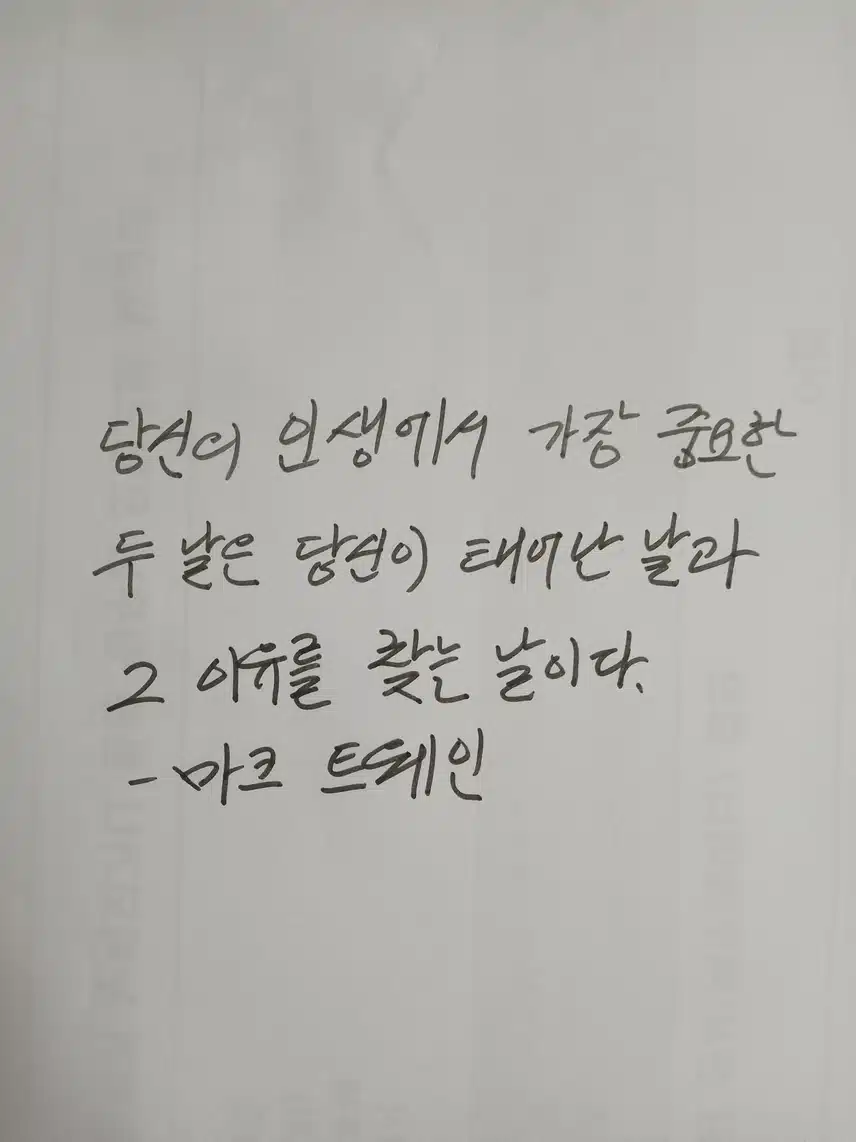 당신의 인생에서 가장 중요한
두 날은 당신이 태어난 날과
그 이유를 찾는 날이다.
- 마크 트웨인